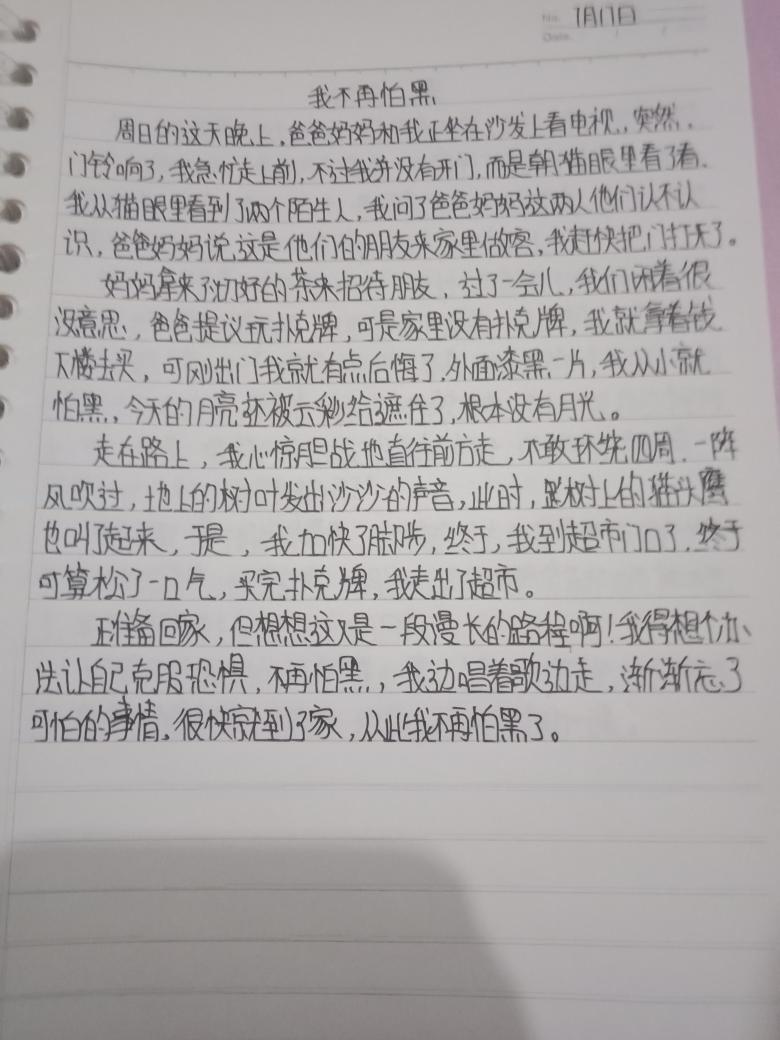 No. 7月17日
Date.
我不再怕黑
周日的这天晚上,爸爸妈妈和我正坐在沙发上看电视,突然,
门铃响了,我急忙走上前,不过我并没有开门,而是朝猫眼里看了看.
我从猫眼里看到了两个陌生人,我问了爸爸妈妈这两人他们认不认
识,爸爸妈妈说这是他们的朋友来家里做客,我赶快把门打开了。
妈妈拿来了切好的茶来招待朋友,过了一会儿,我们闲着很
没意思,爸爸提议玩扑克牌,可是家里没有扑克牌,我就拿着钱
下楼去买,可刚出门我就有点后悔了,外面漆黑一片,我从小就
怕黑,今天的月亮还被云彩给遮住了,根本没有月光。
走在路上,我心惊胆战地直往前方走,不敢环绕四周.一阵
风吹过,地上的树叶发出沙沙的声音,此时,树上的猫头鹰
也叫了起来,于是,我加快了脚步,终于,我到超市门口了.终于
可算松了一口气,买完扑克牌,我走出了超市。
正准备回家,但想想这又是一段漫长的路程啊!我得想个办
法让自己克服恐惧,不再怕黑,我边唱着歌边走,渐渐忘了
可怕的事情.很快就到了家,从此我不再怕黑了。